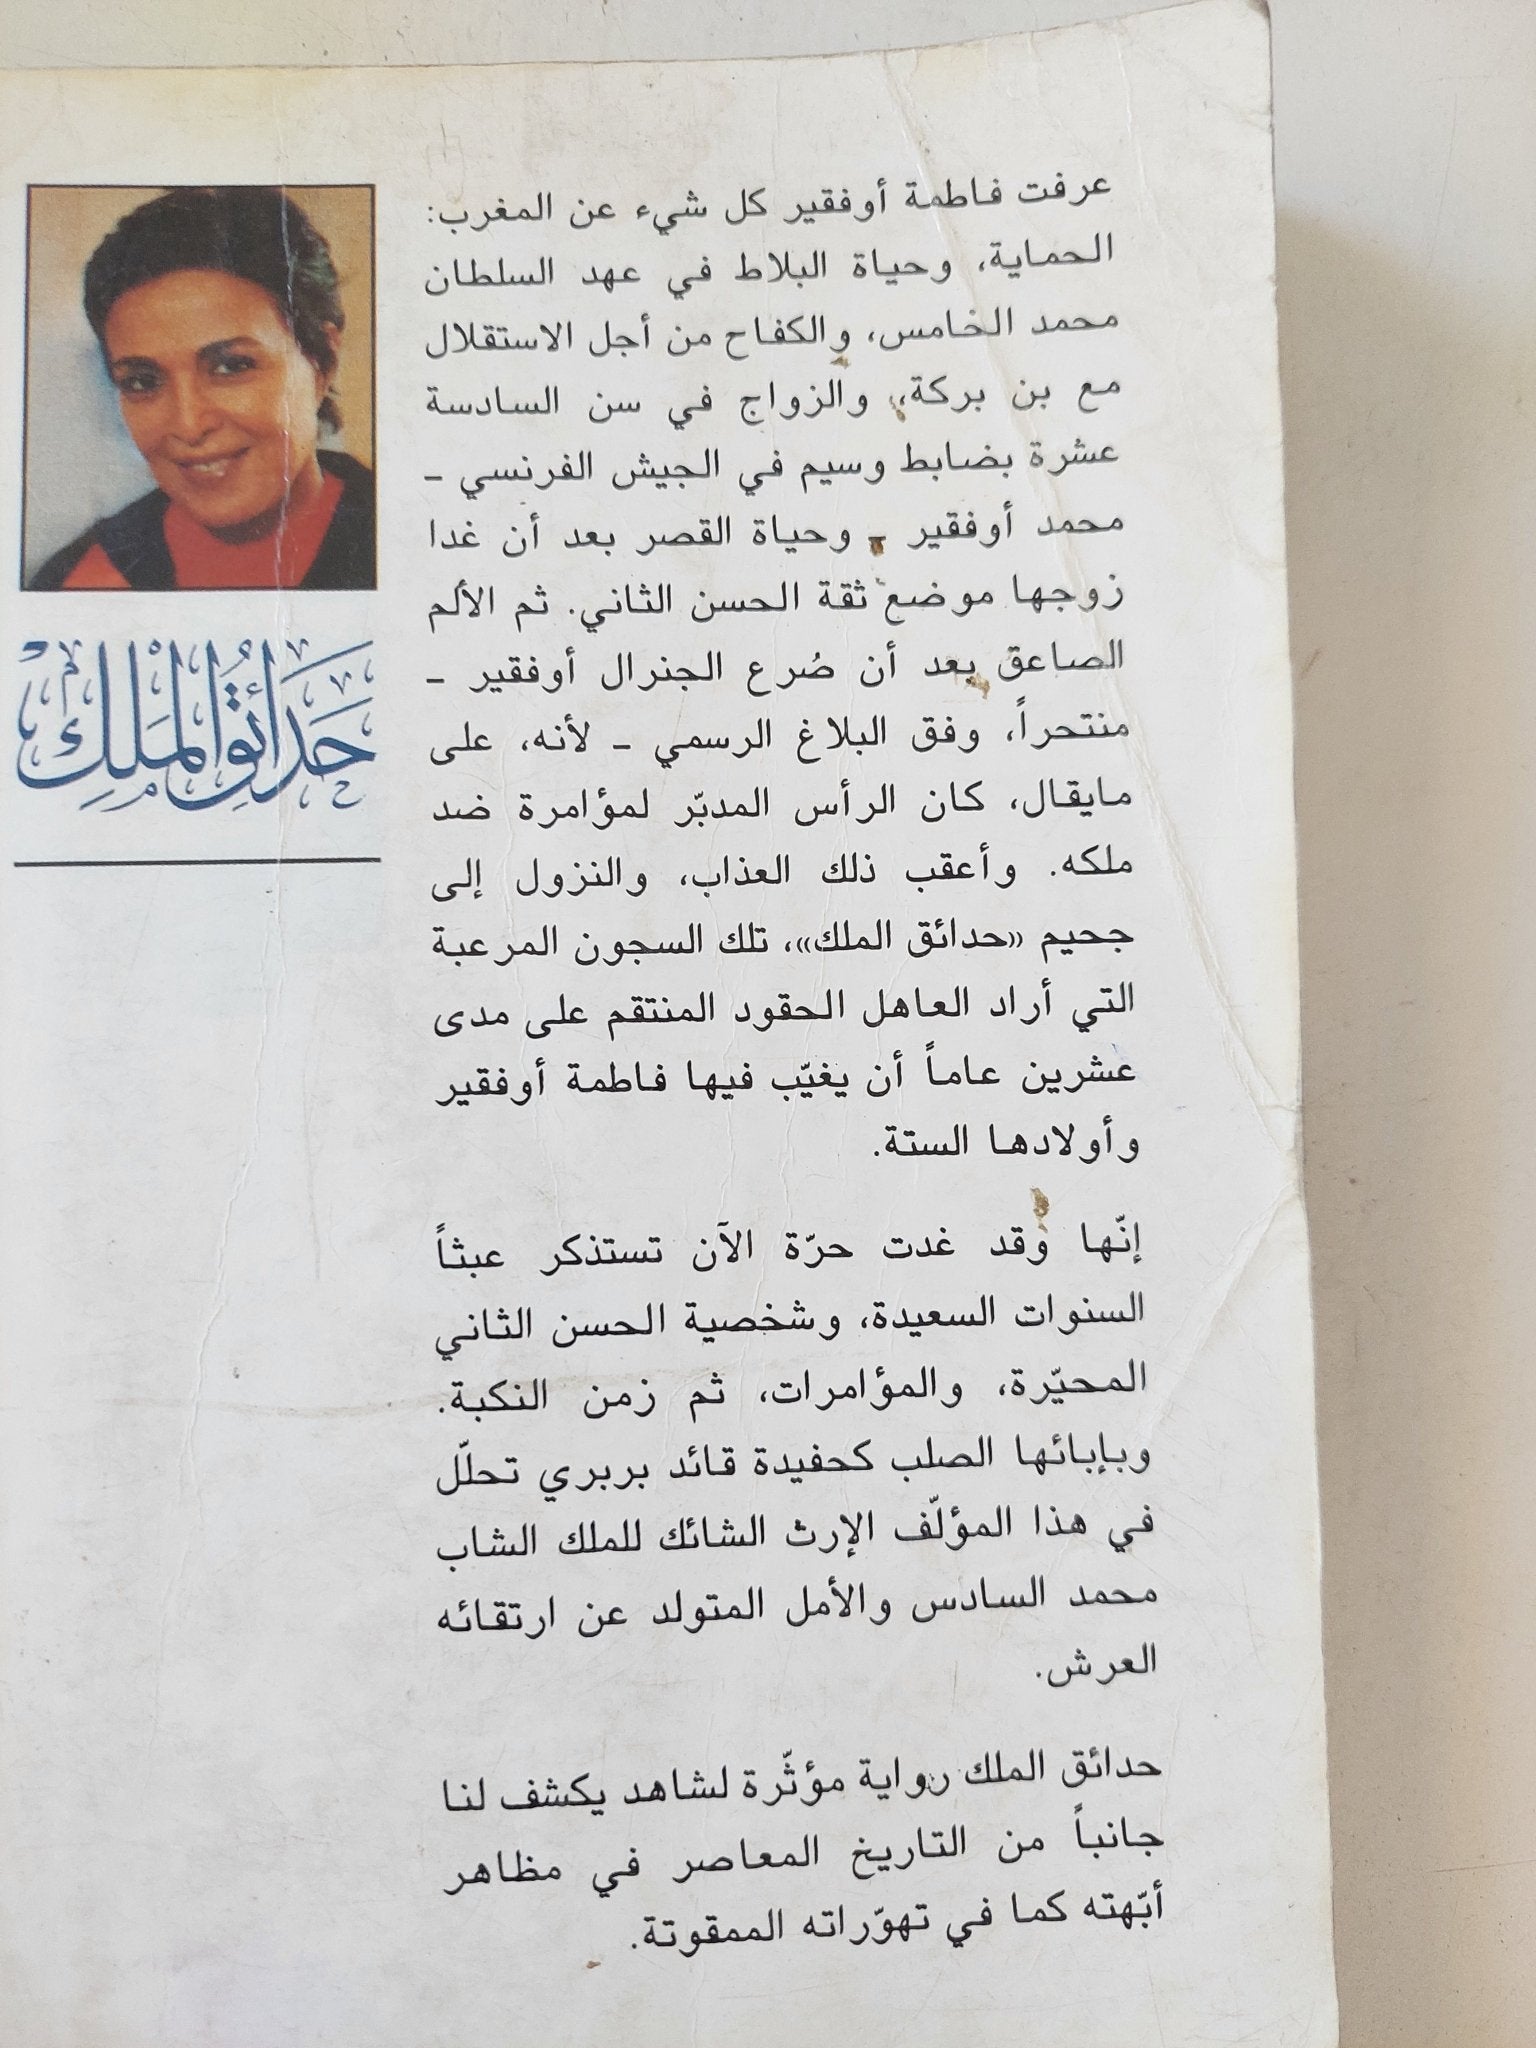 عرفت فاطمة أوفقير كل شيء عن المغرب:
الحماية، وحياة البلاط في عهد السلطان
محمد الخامس، والكفاح من أجل الاستقلال
مع بن بركة، والزواج في سن السادسة
عشرة بضابط وسيم في الجيش الفرنسي ـ
محمد أوفقير ـ وحياة القصر بعد أن غدا
زوجها موضع ثقة الحسن الثاني. ثم الألم
الصاعق بعد أن صُرع الجنرال أوفقير ـ
منتحراً، وفق البلاغ الرسمي ـ لأنه، على
مايقال، كان الرأس المدبّر لمؤامرة ضد
ملكه. وأعقب ذلك العذاب، والنزول إلى
جحيم «حدائق الملك»، تلك السجون المرعبة
التي أراد العاهل الحقود المنتقم على مدى
عشرين عاماً أن يغيّب فيها فاطمة أوفقير
وأولادها الستة.
إنّها وقد غدت حرّة الآن تستذكر عبثاً
السنوات السعيدة، وشخصية الحسن الثاني
المحيّرة، والمؤامرات، ثم زمن النكبة.
وبإبائها الصلب كحفيدة قائد بربري تحلّل
في هذا المؤلّف الإرث الشائك للملك الشاب
محمد السادس والأمل المتولد عن ارتقائه
العرش.
حدائق الملك رواية مؤثّرة لشاهد يكشف لنا
جانباً من التاريخ المعاصر في مظاهر
أبّهته كما في تهوّراته الممقوتة.
حَدَائِقُ المْلَكِ